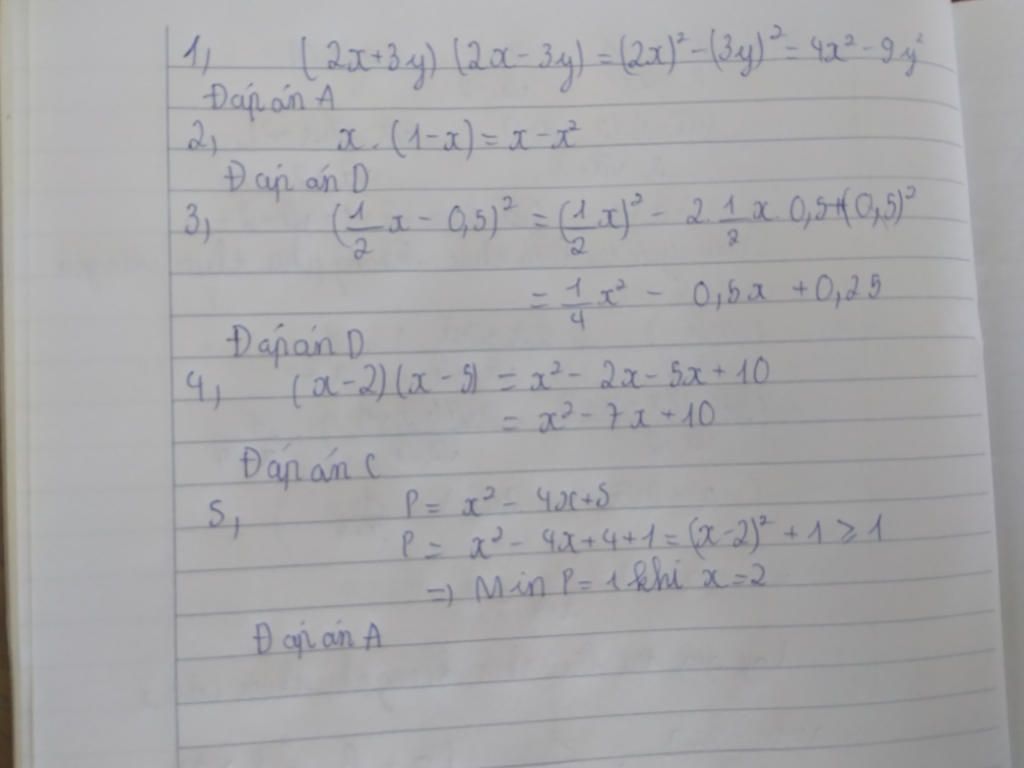 1, (2x+3y) (2x-3y) = (2x)² - (3y)² = 4x² - 9y²
Đáp án A
2, x . (1-x) = x - x²
Đáp án D
3, (1/2 x - 0,5)² = (1/2 x)² - 2. 1/2 x. 0,5 + (0,5)²
= 1/4 x² - 0,5x + 0,25
Đáp án D
4, (x-2)(x-5) = x² - 2x - 5x + 10
= x² - 7x + 10
Đáp án C
5, P = x² - 4x + 5
P = x² - 4x + 4 + 1 = (x-2)² + 1 ≥ 1
=> Min P = 1 khi x = 2
Đáp án A